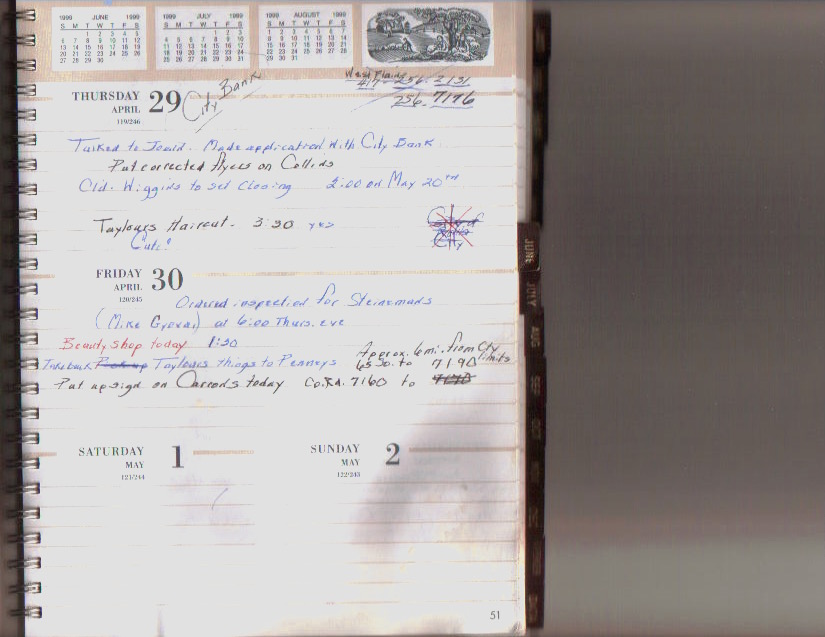 1999 JUNE 1999
S M T W T F S
1 2 3 4 5
6 7 8 9 10 11 12
13 14 15 16 17 18 19
20 21 22 23 24 25 26
27 28 29 30
1999 JULY 1999
S M T W T F S
1 2 3
4 5 6 7 8 9 10
11 12 13 14 15 16 17
18 19 20 21 22 23 24
25 26 27 28 29 30 31
1999 AUGUST 1999
S M T W T F S
1 2 3 4 5 6 7
8 9 10 11 12 13 14
15 16 17 18 19 20 21
22 23 24 25 26 27 28
29 30 31
West Plains
417-256-2131
256-7176
City Bank
THURSDAY 29
APRIL
119/246
Talked to Made application with City Bank
Put corrected flyers on Collins
Cld. Wiggins to set closing 2:00 on May 20th
Taylours Haircut. 3:30 yes
"Cuts"
City
FRIDAY 30
APRIL
120/245
Ordered inspection for
(Mike at 6:00 Thurs. eve
Beauty Shop today 1:30
Take back Pick up Taylours things to Penneys
Approx. 6 mi. from City limits
6530 to 7190
Put up sign on today Co. Rd. 7160 to
SATURDAY 1
MAY
121/244
SUNDAY 2
MAY
122/243
51
JUNE
JULY
AUG
SEP
OCT